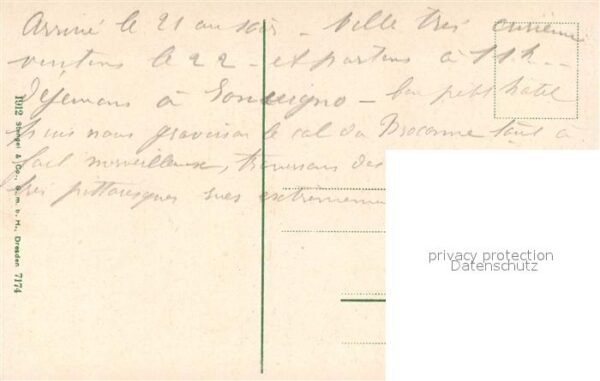 Arrivé le 21 au soir - Ville très curieuse
visitons le 22 - et partons à 11h -
Déjeunons à - bon petit hôtel
puis nous gravissons le col du Broconne tout à
fait merveilleux, traversons des
très pittoresques rues extrêmement
1912 Stengel & Co., G. m. b. H., Dresden 7174
privacy protection
Datenschutz